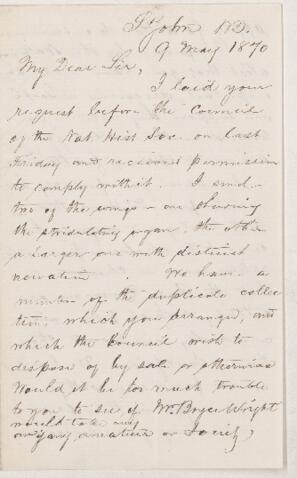 St John N.B.
9 May 1870
My Dear Sir,
I laid your
request before the Council
of the Nat. Hist Soc. on last
Friday and received permission
to comply with it. I send
two of the wings – one showing
the stridulating organ, the other
a larger one with distinct
. We have a
number of the duplicate collec
tion, which you arranged, and
which the Council wish to
dispose of by sale or otherwise
Would it be too much trouble
to you to see if Mr Bryce Wright
would take any
or any amateur or Society,